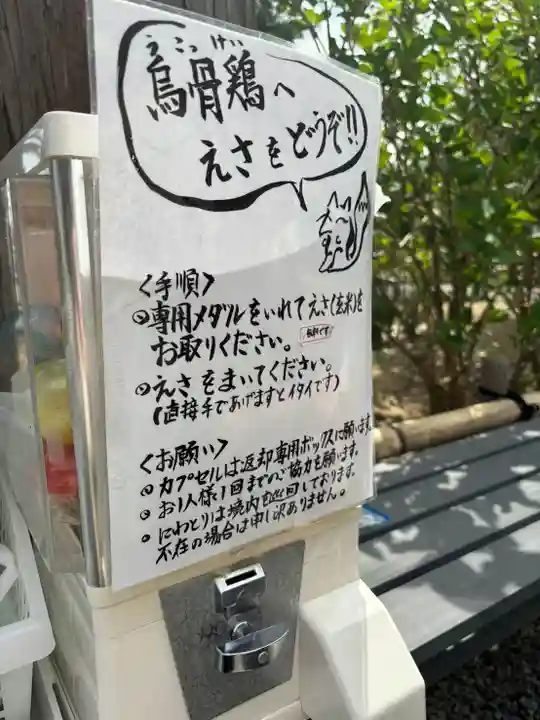 うこっけい
烏骨鶏へ
えさをどうぞ!!
<手順>
◎専用メダルをいれてえさ(玄米)を
お取りください。
無料です
◎えさをまいてください。
(直接手であげますとイタイです)
<お願い>
◎カプセルは返却専用ボックスに願います。
◎お1人様1回までのご協力を願います。
◎にわとりは境内を巡回しております。
不在の場合は申し訳ありません。